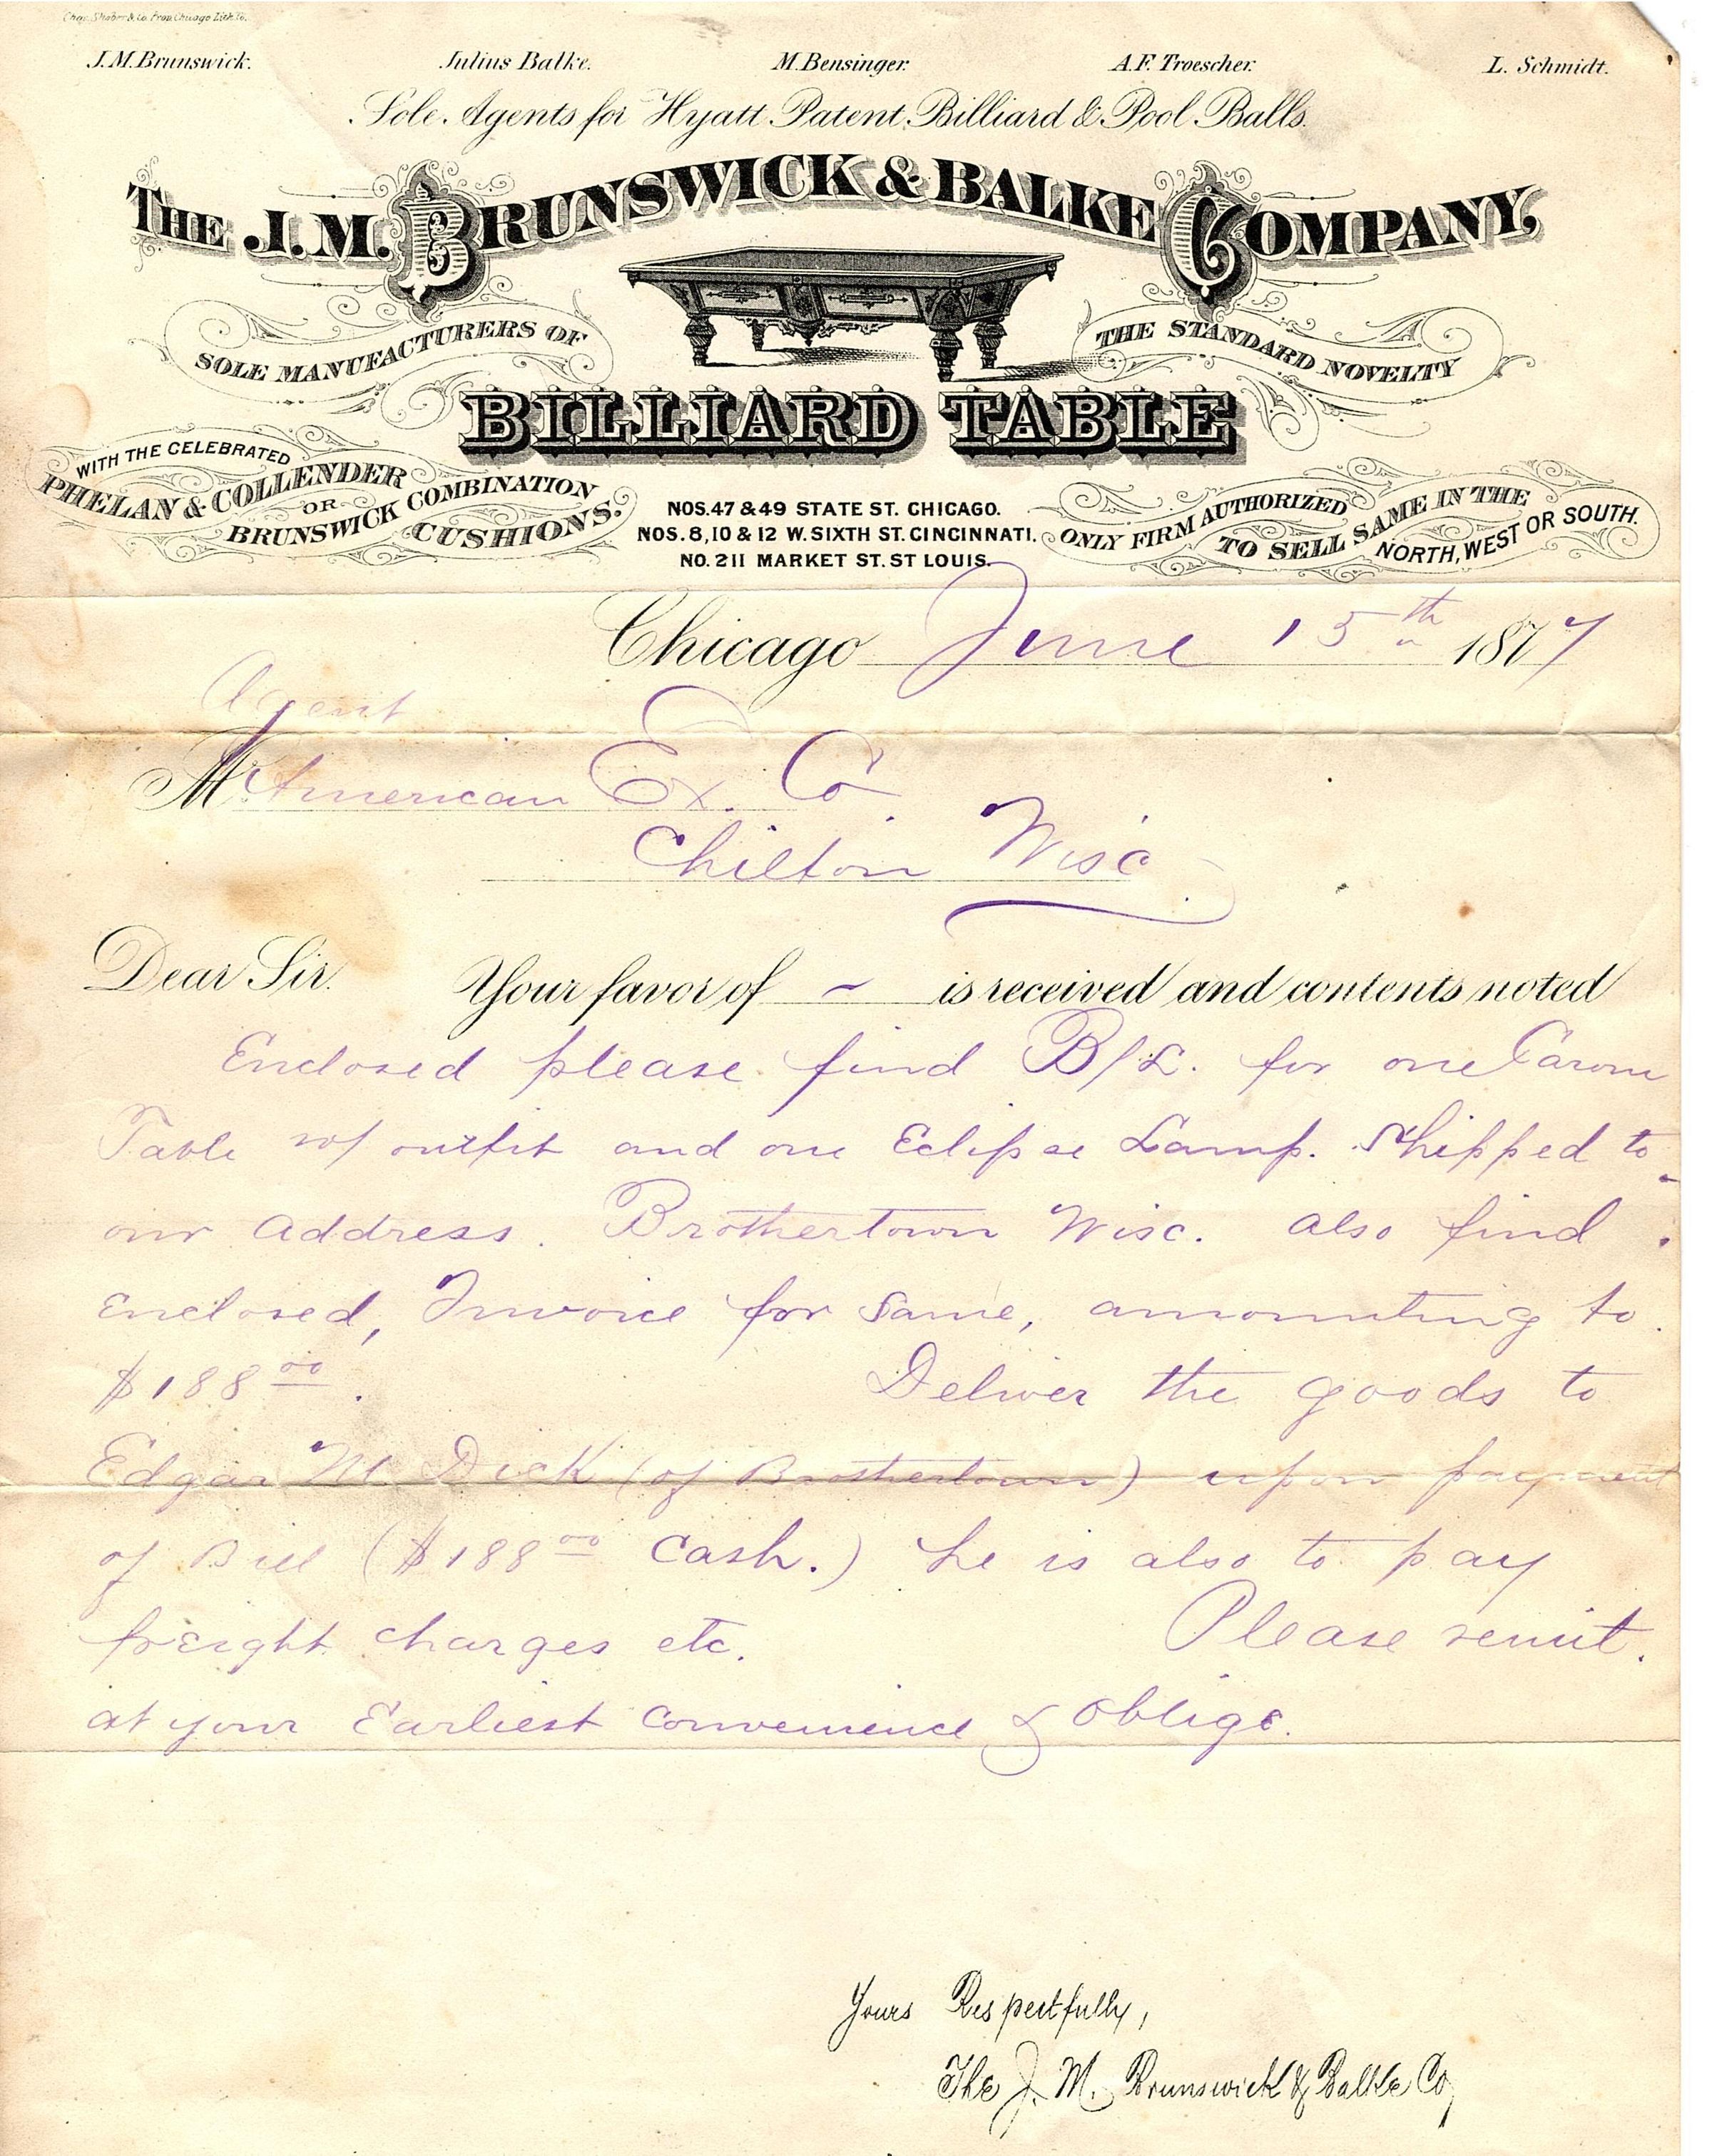 Chas. Shober & Co. Props Chicago Lith. Co.
J.M. Brunswick. Julius Balke. M. Bensinger. A.F. Troescher. L. Schmidt.
Sole Agents for Hyatt Patent Billiard & Pool Balls.
THE J.M. BRUNSWICK & BALKE COMPANY,
SOLE MANUFACTURERS OF
THE STANDARD NOVELTY
BILLIARD TABLE
WITH THE CELEBRATED
PHELAN & COLLENDER
OR
BRUNSWICK COMBINATION
CUSHIONS.
NOS. 47 & 49 STATE ST. CHICAGO.
NOS. 8, 10 & 12 W. SIXTH ST. CINCINNATI.
NO. 211 MARKET ST. ST LOUIS.
ONLY FIRM AUTHORIZED
TO SELL SAME IN THE
NORTH, WEST OR SOUTH.
Chicago June 15th 1877
Agent
M American Ex. Co
Chilton Wisc
Dear Sir. Your favor of ~ is received and contents noted
Enclosed please find B/L. for one Carom
Table w/ outfit and one Eclipse Lamp. Shipped to
our address. Brothertown Wisc. also find
enclosed, Invoice for Same, amounting to
$188 00. Deliver the goods to
Edgar M. Dick (of Brothertown) upon payment
of Bill ($188 00 Cash.) he is also to pay
freight charges etc. Please remit.
at your Earliest convenience & oblige.
Yours Respectfully,
The J. M. Brunswick & Balke Co,